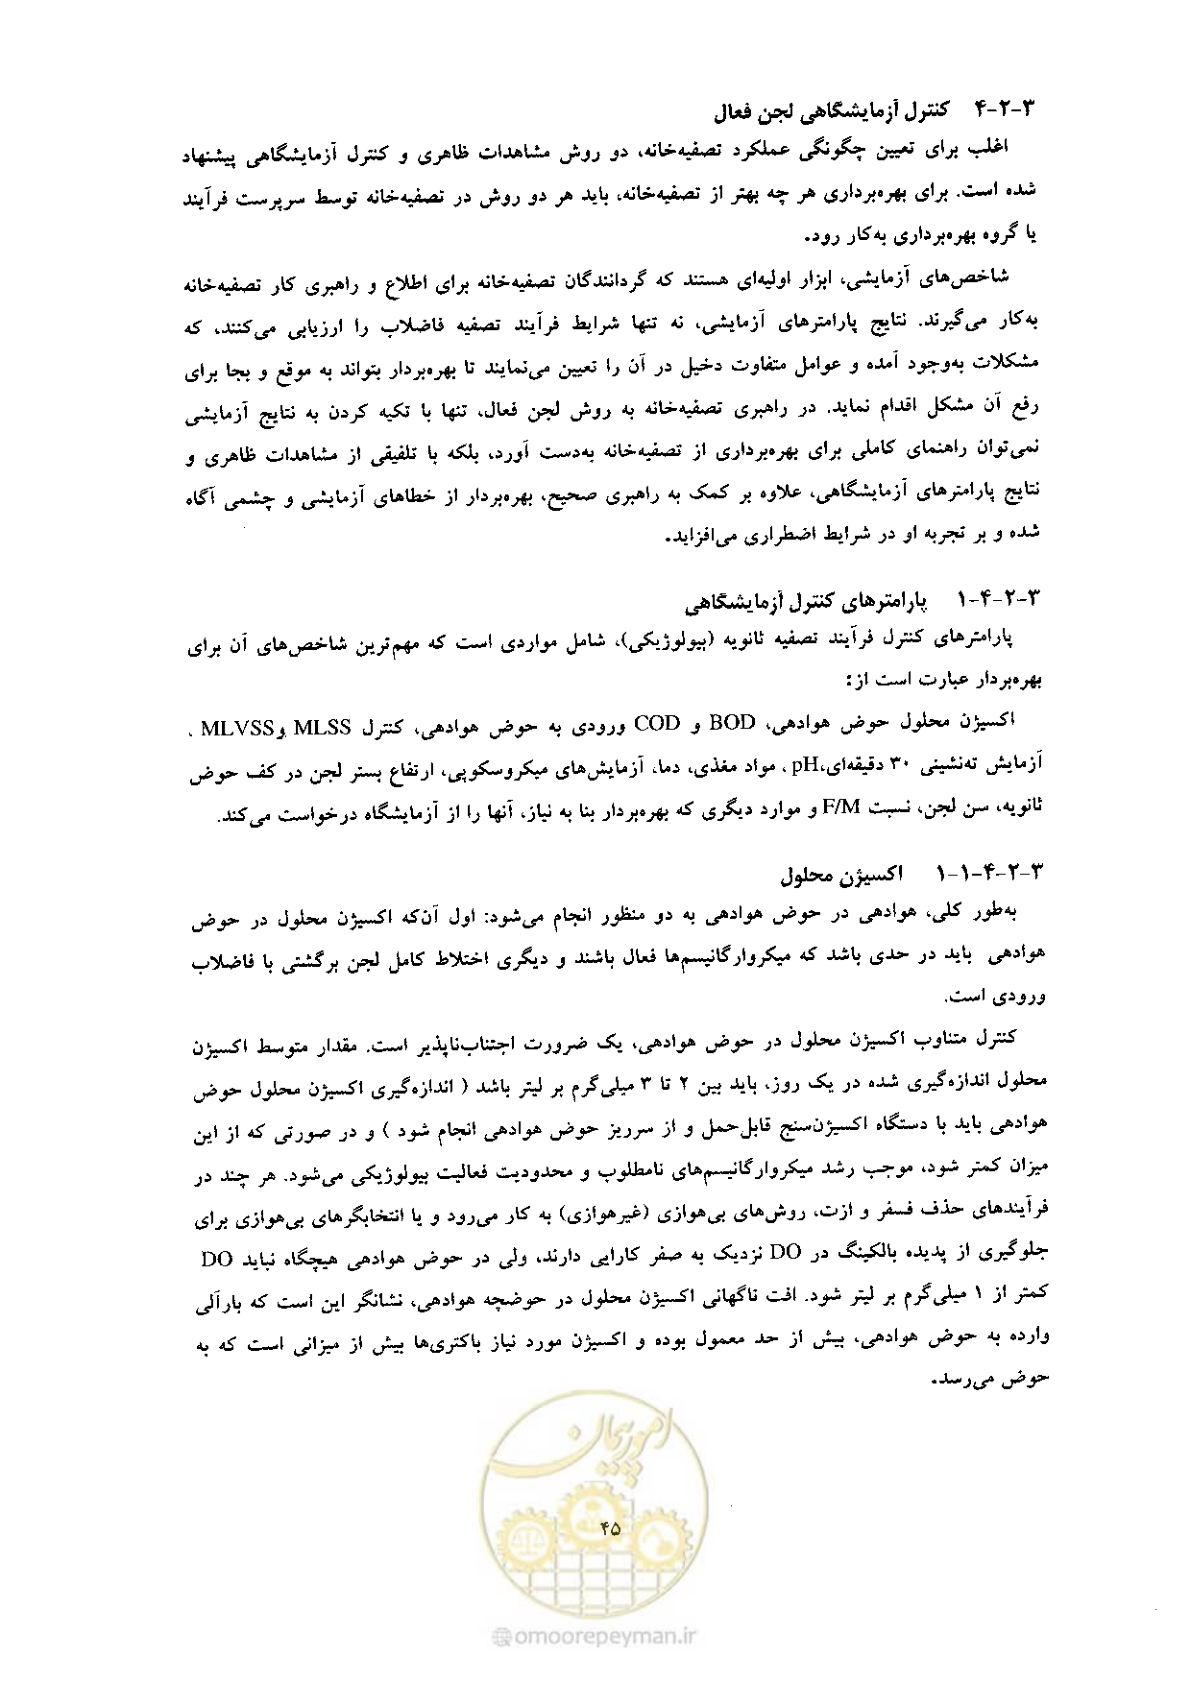 ۳-۲-۴ کنترل آزمایشگاهی لجن فعال
اغلب برای تعیین چگونگی عملکرد تصفیه‌خانه، دو روش مشاهدات ظاهری و کنترل آزمایشگاهی پیشنهاد
شده است. برای بهره‌برداری هر چه بهتر از تصفیه‌خانه، باید هر دو روش در تصفیه‌خانه توسط سرپرست فرآیند
یا گروه بهره‌برداری به‌کار رود.
شاخص‌های آزمایشی، ابزار اولیه‌ای هستند که گردانندگان تصفیه‌خانه برای اطلاع و راهبری کار تصفیه‌خانه
به‌کار می‌گیرند. نتایج پارامترهای آزمایشی، نه تنها شرایط فرآیند تصفیه فاضلاب را ارزیابی می‌کنند، که
مشکلات به‌وجود آمده و عوامل متفاوت دخیل در آن را تعیین می‌نمایند تا بهره‌بردار بتواند به موقع و بجا برای
رفع آن مشکل اقدام نماید. در راهبری تصفیه‌خانه به روش لجن فعال، تنها با تکیه کردن به نتایج آزمایشی
نمی‌توان راهنمای کاملی برای بهره‌برداری از تصفیه‌خانه به‌دست آورد، بلکه با تلفیقی از مشاهدات ظاهری و
نتایج پارامترهای آزمایشگاهی، علاوه بر کمک به راهبری صحیح، بهره‌بردار از خطاهای آزمایشی و چشمی آگاه
شده و بر تجربه او در شرایط اضطراری می‌افزاید.
۳-۲-۴-۱ پارامترهای کنترل آزمایشگاهی
پارامترهای کنترل فرآیند تصفیه ثانویه (بیولوژیکی)، شامل مواردی است که مهم‌ترین شاخص‌های آن برای
بهره‌بردار عبارت است از:
اکسیژن محلول حوض هوادهی، BOD و COD ورودی به حوض هوادهی، کنترل MLSS و MLVSS ،
آزمایش ته‌نشینی ۳۰ دقیقه‌ای، pH ، مواد مغذی، دما، آزمایش‌های میکروسکوپی، ارتفاع بستر لجن در کف حوض
ثانویه، سن لجن، نسبت F/M و موارد دیگری که بهره‌بردار بنا به نیاز، آنها را از آزمایشگاه درخواست می‌کند.
۳-۲-۴-۱-۱ اکسیژن محلول
به‌طور کلی، هوادهی در حوض هوادهی به دو منظور انجام می‌شود: اول آن‌که اکسیژن محلول در حوض
هوادهی باید در حدی باشد که میکروارگانیسم‌ها فعال باشند و دیگری اختلاط کامل لجن برگشتی با فاضلاب
ورودی است.
کنترل متناوب اکسیژن محلول در حوض هوادهی، یک ضرورت اجتناب‌ناپذیر است. مقدار متوسط اکسیژن
محلول اندازه‌گیری شده در یک روز، باید بین ۲ تا ۳ میلی‌گرم بر لیتر باشد ( اندازه‌گیری اکسیژن محلول حوض
هوادهی باید با دستگاه اکسیژن‌سنج قابل‌حمل و از سرریز حوض هوادهی انجام شود ) و در صورتی که از این
میزان کمتر شود، موجب رشد میکروارگانیسم‌های نامطلوب و محدودیت فعالیت بیولوژیکی می‌شود. هر چند در
فرآیندهای حذف فسفر و ازت، روش‌های بی‌هوازی (غیرهوازی) به کار می‌رود و یا انتخابگرهای بی‌هوازی برای
جلوگیری از پدیده بالکینگ در DO نزدیک به صفر کارایی دارند، ولی در حوض هوادهی هیچگاه نباید DO
کمتر از ۱ میلی‌گرم بر لیتر شود. افت ناگهانی اکسیژن محلول در حوضچه هوادهی، نشانگر این است که بارآلی
وارده به حوض هوادهی، بیش از حد معمول بوده و اکسیژن مورد نیاز باکتری‌ها بیش از میزانی است که به
حوض می‌رسد.
امور پیمان
۴۵
omoorepeyman.ir